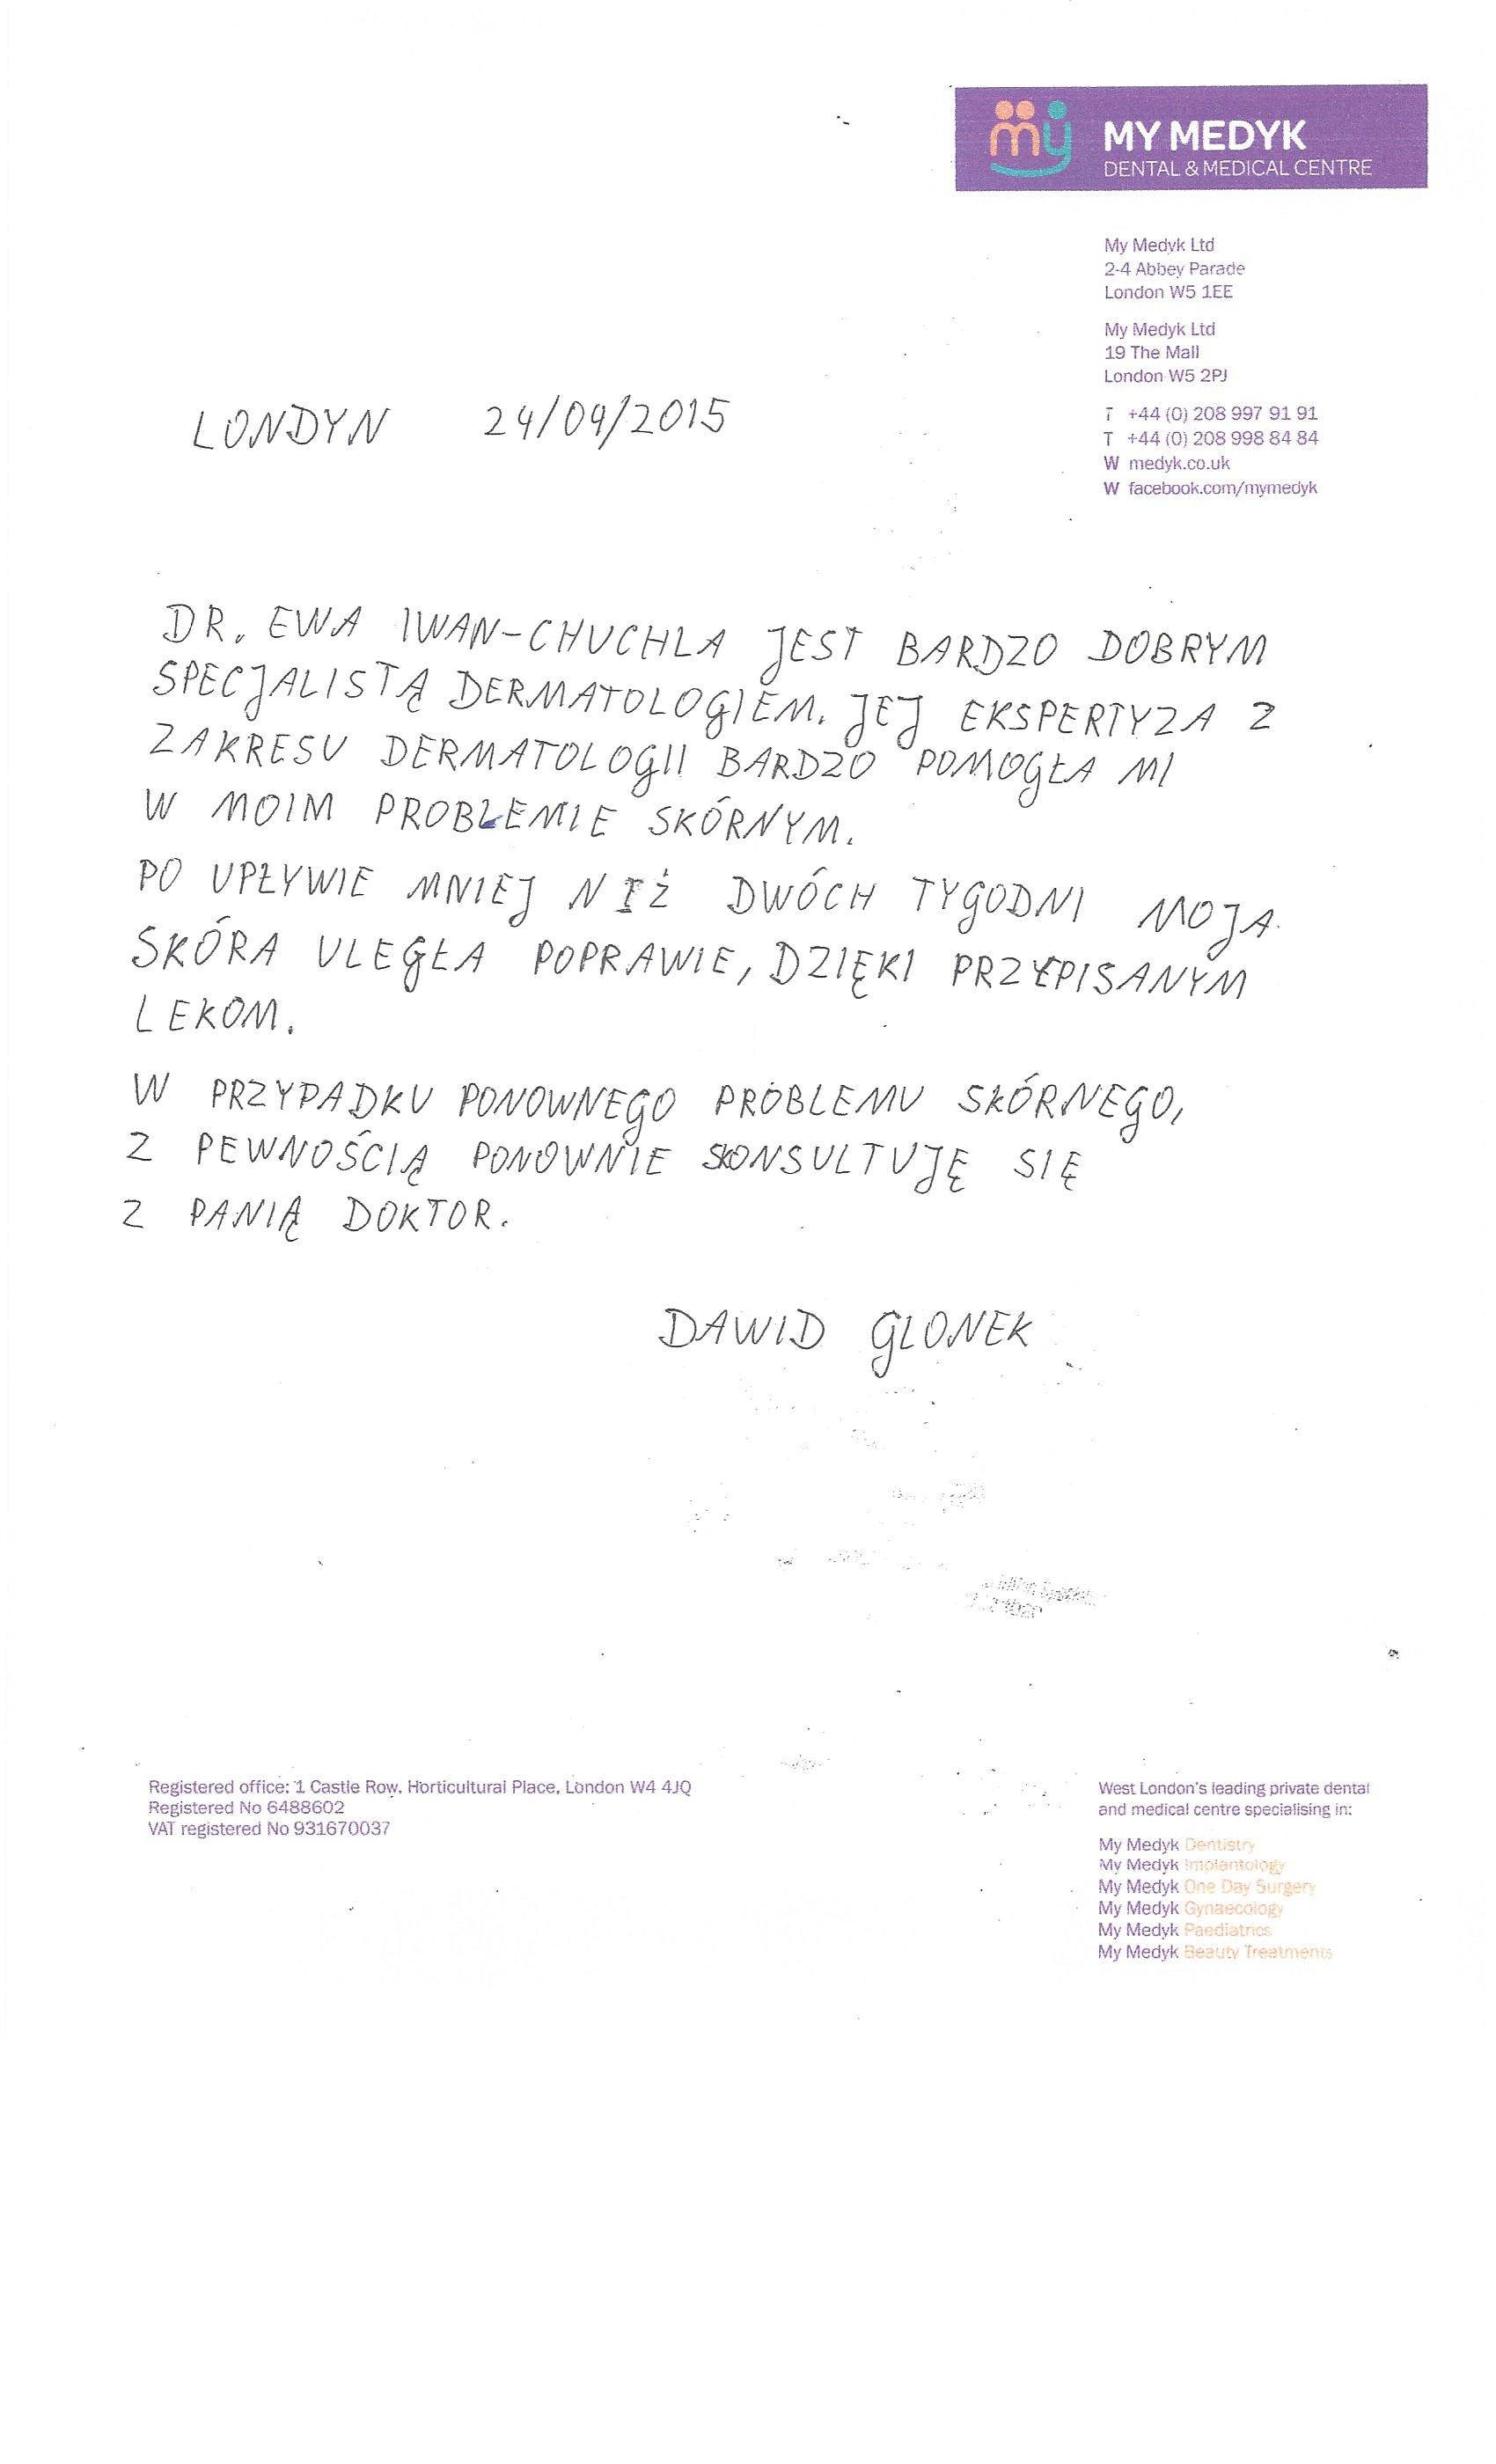 my MY MEDYK
DENTAL & MEDICAL CENTRE
My Medyk Ltd
2-4 Abbey Parade
London W5 1EE
My Medyk Ltd
19 The Mall
London W5 2PJ
T +44 (0) 208 997 91 91
T +44 (0) 208 998 84 84
W medyk.co.uk
W facebook.com/mymedyk
LONDYN 24/04/2015
DR. EWA IWAN-CHUCHLA JEST BARDZO DOBRYM
SPECJALISTĄ DERMATOLOGIEM. JEJ EKSPERTYZA Z
ZAKRESU DERMATOLOGII BARDZO POMOGŁA MI
W MOIM PROBLEMIE SKÓRNYM.
PO UPŁYWIE MNIEJ NIŻ DWÓCH TYGODNI MOJA
SKÓRA ULEGŁA POPRAWIE, DZIĘKI PRZEPISANYM
LEKOM.
W PRZYPADKU PONOWNEGO PROBLEMU SKÓRNEGO,
Z PEWNOŚCIĄ PONOWNIE SKONSULTUJĘ SIĘ
Z PANIĄ DOKTOR.
DAWID GLONEK
Registered office: 1 Castle Row, Horticultural Place, London W4 4JQ
Registered No 6488602
VAT registered No 931670037
West London's leading private dental
and medical centre specialising in:
My Medyk Dentistry
My Medyk Implantology
My Medyk One Day Surgery
My Medyk Gynaecology
My Medyk Paediatrics
My Medyk Beauty Treatments